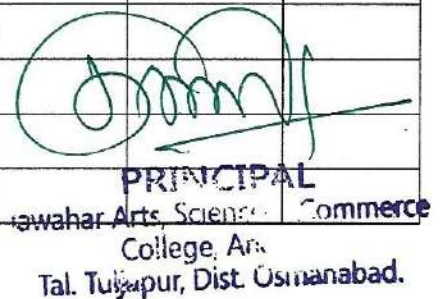 PRINCIPAL
Jawahar Arts, Science Commerce
College, An
Tal. Tuljapur, Dist. Osmanabad.